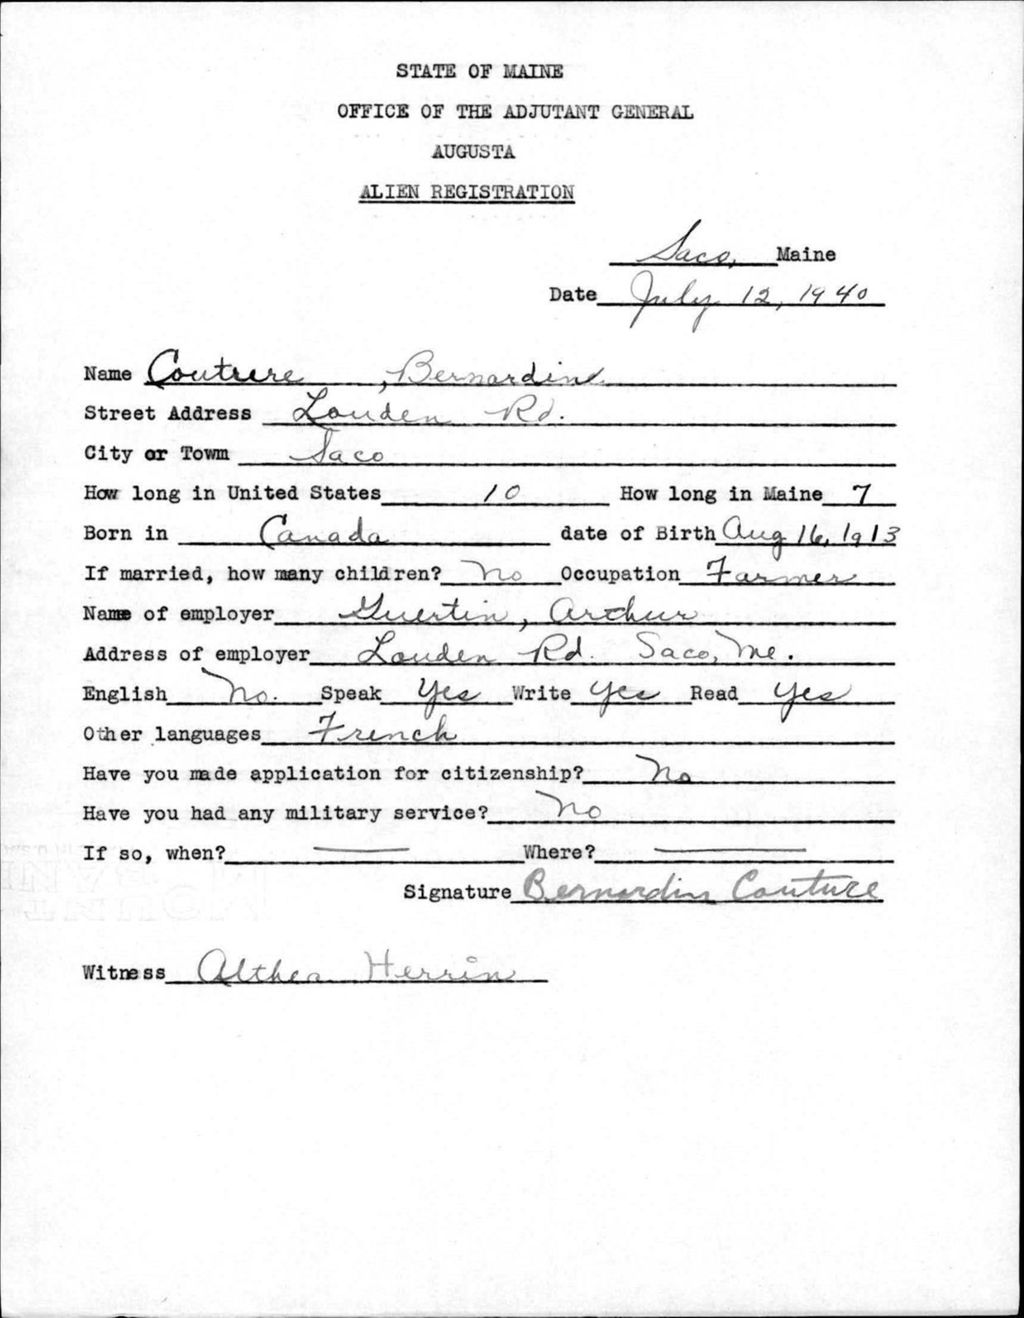 STATE OF MAINE
OFFICE OF THE ADJUTANT GENERAL
AUGUSTA
ALIEN REGISTRATION
Saco, Maine
Date July 12, 1940
Name Couture, Bernardin
Street Address Louden Rd.
City or Town Saco
How long in United States 10 How long in Maine 7
Born in Canada date of Birth Aug 16, 1913
If married, how many children? No Occupation Farmer
Name of employer Guertin, Arthur
Address of employer Louden Rd. Saco, Me.
English No. Speak Yes Write Yes Read Yes
Other languages French
Have you made application for citizenship? No
Have you had any military service? No
If so, when? — Where? —
Signature Bernardin Couture
Witness Althea Herrin